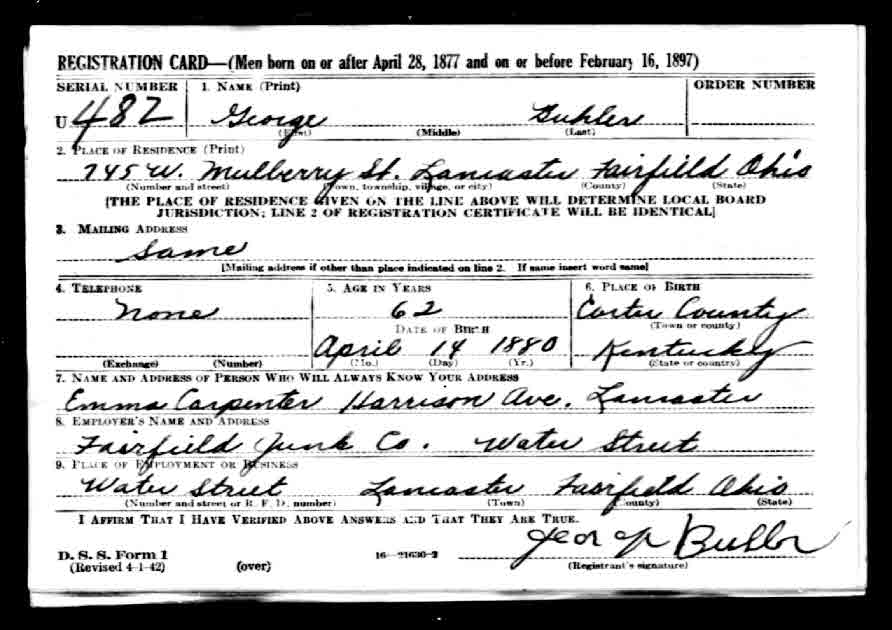 REGISTRATION CARD—(Men born on or after April 28, 1877 and on or before February 16, 1897)
SERIAL NUMBER 1. NAME (Print) ORDER NUMBER
U 482 George Buhler
(First) (Middle) (Last)
2. PLACE OF RESIDENCE (Print)
745 W. Mulberry St. Lancaster Fairfield Ohio
(Number and street) (Town, township, village, or city) (County) (State)
[THE PLACE OF RESIDENCE GIVEN ON THE LINE ABOVE WILL DETERMINE LOCAL BOARD
JURISDICTION; LINE 2 OF REGISTRATION CERTIFICATE WILL BE IDENTICAL]
3. MAILING ADDRESS
Same
[Mailing address if other than place indicated on line 2. If same insert word same]
4. TELEPHONE 5. AGE IN YEARS 6. PLACE OF BIRTH
None 62 Carter County
DATE OF BIRTH (Town or county)
April 14 1880 Kentucky
(Exchange) (Number) (Mo.) (Day) (Yr.) (State or country)
7. NAME AND ADDRESS OF PERSON WHO WILL ALWAYS KNOW YOUR ADDRESS
Emma Carpenter Harrison Ave. Lancaster
8. EMPLOYER'S NAME AND ADDRESS
Fairfield Junk Co. Water Street
9. PLACE OF EMPLOYMENT OR BUSINESS
Water Street Lancaster Fairfield Ohio
(Number and street or R. F. D. number) (Town) (County) (State)
I AFFIRM THAT I HAVE VERIFIED ABOVE ANSWERS AND THAT THEY ARE TRUE.
George Buhler
D. S. S. Form 1 16—21630-2
(Revised 4-1-42) (over) (Registrant's signature)